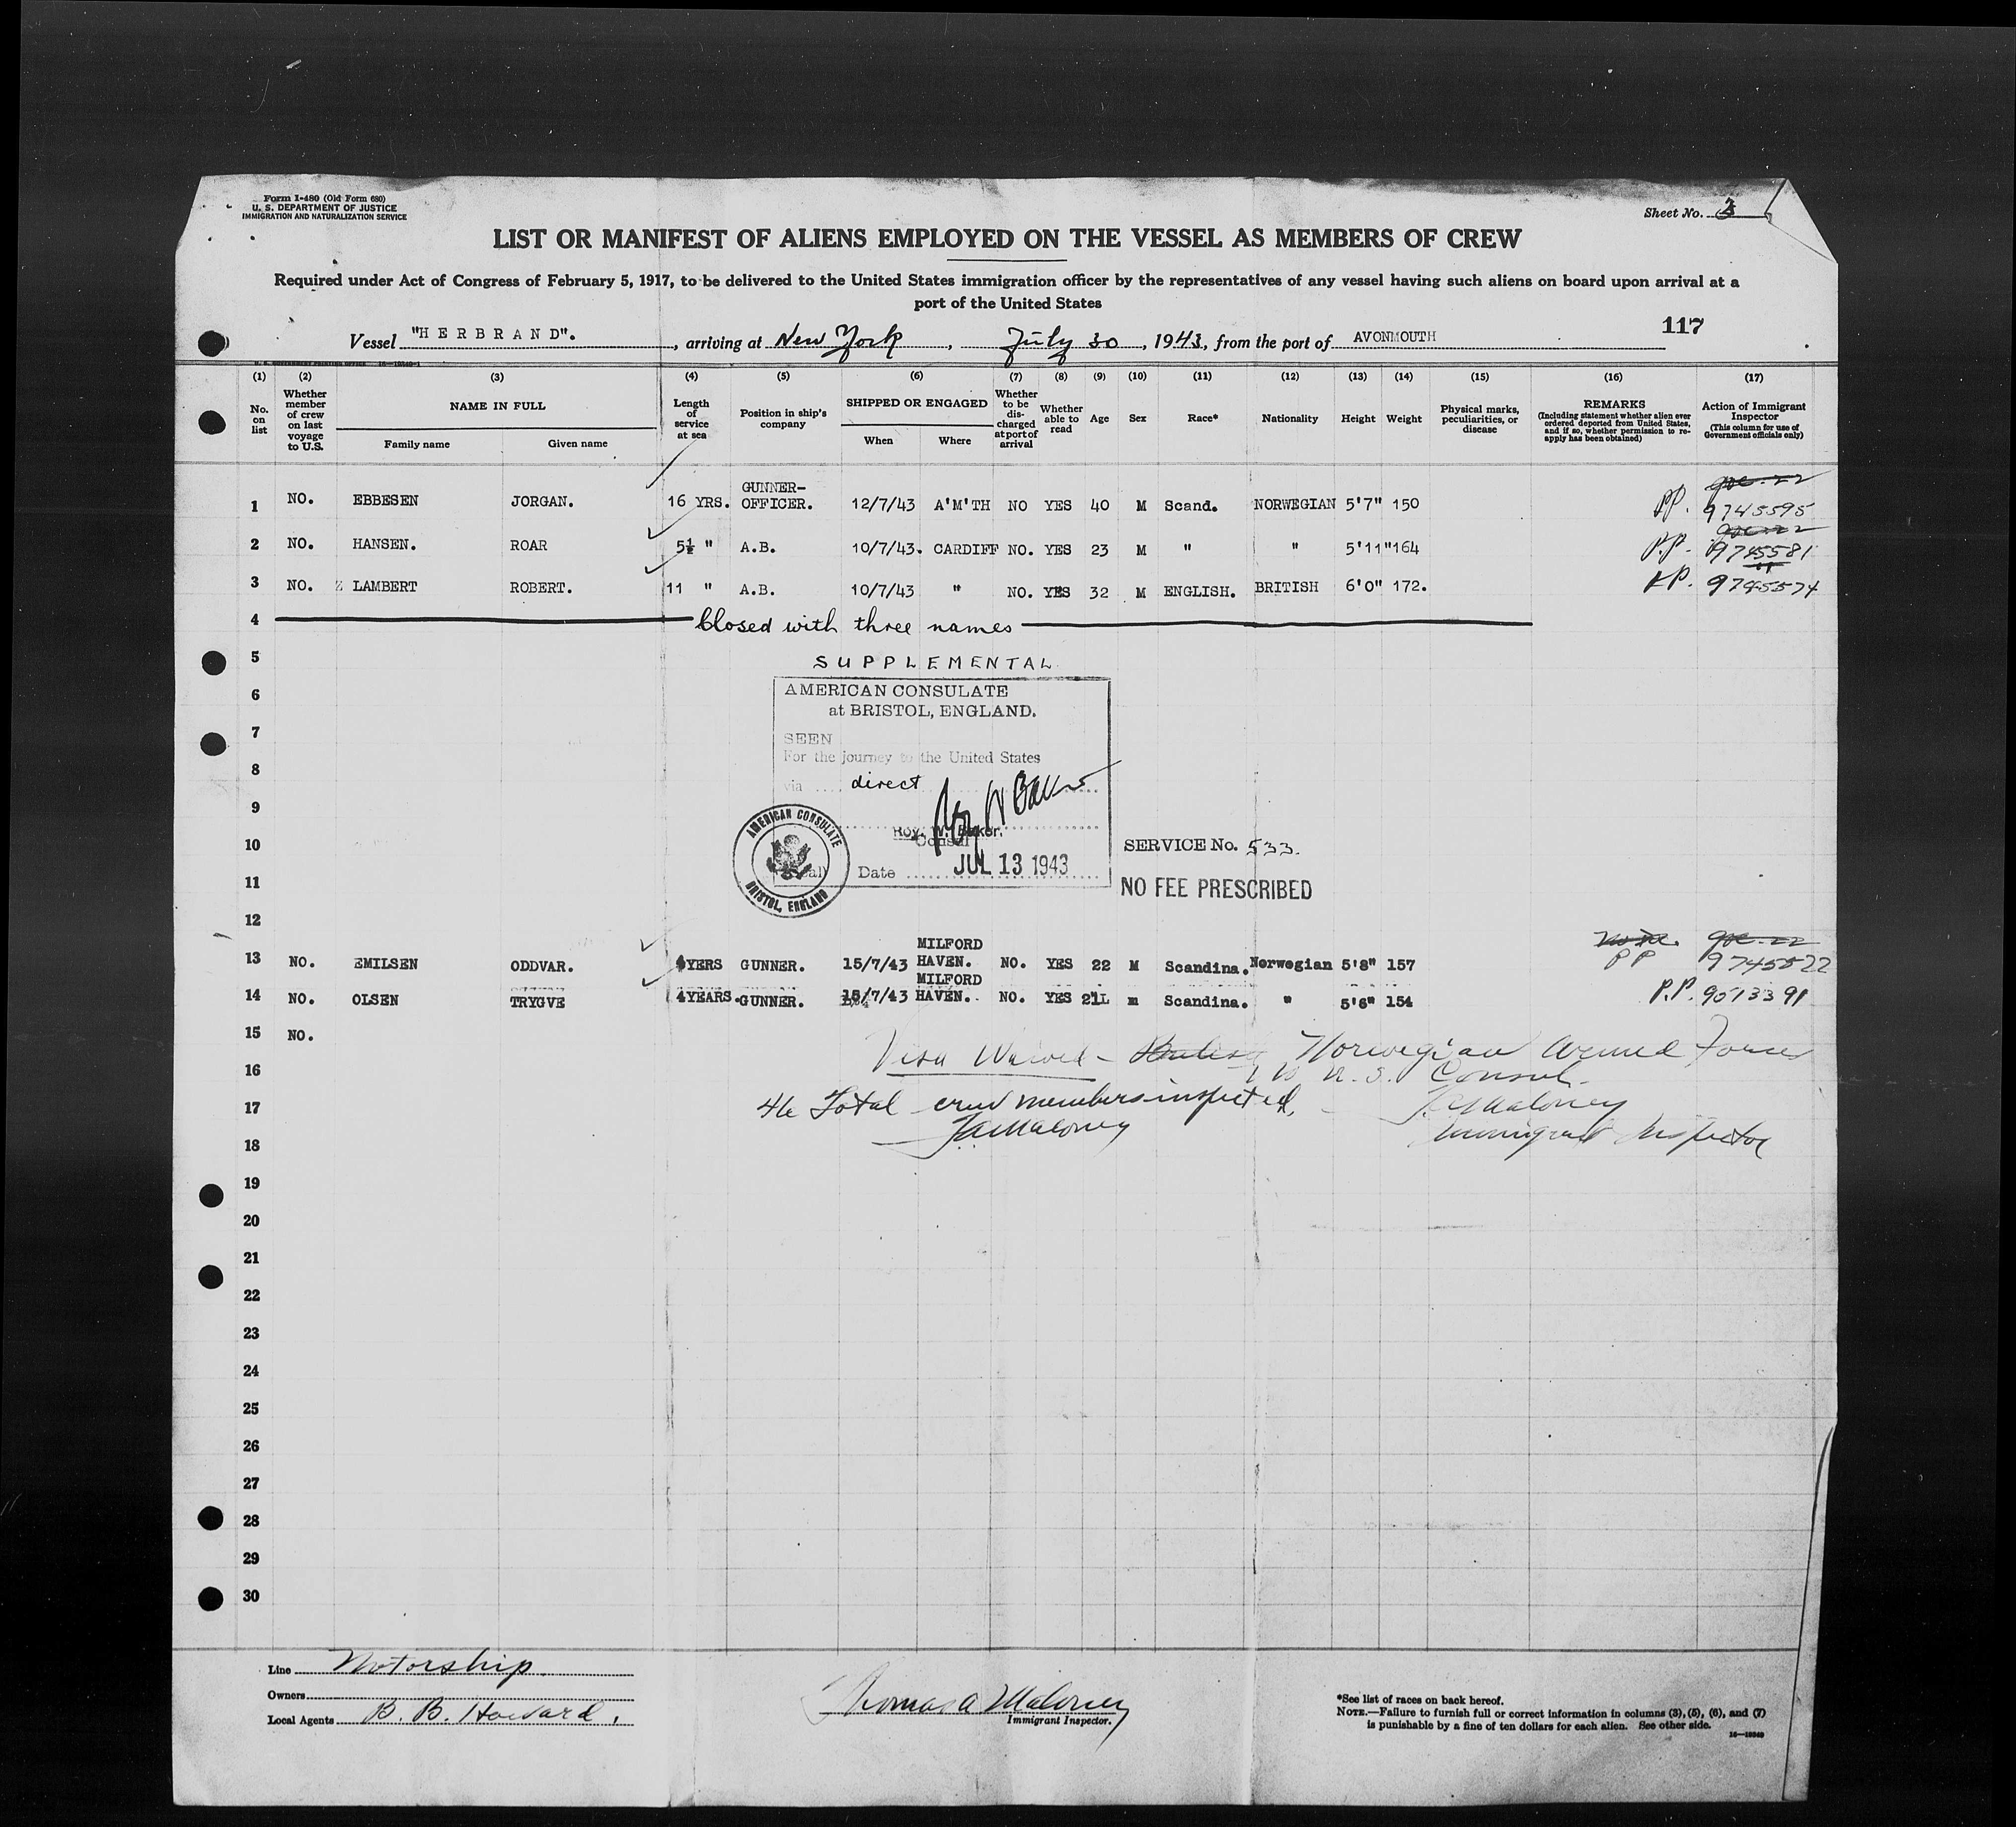 Form I-480 (Old Form 680)
U. S. DEPARTMENT OF JUSTICE
IMMIGRATION AND NATURALIZATION SERVICE
Sheet No.
LIST OR MANIFEST OF ALIENS EMPLOYED ON THE VESSEL AS MEMBERS OF CREW
Required under Act of Congress of February 5, 1917, to be delivered to the United States immigration officer by the representatives of any vessel having such aliens on board upon arrival at a
port of the United States
117
Vessel "HERBRAND". , arriving at New York , July 30 , 1943, from the port of AVONMOUTH
(1) (2) (3) (4) (5) (6) (7) (8) (9) (10) (11) (12) (13) (14) (15) (16) (17)
No. on list
Whether member of crew on last voyage to U.S.
NAME IN FULL
Family name Given name
Length of service at sea
Position in ship's company
SHIPPED OR ENGAGED
When Where
Whether to be discharged at port of arrival
Whether able to read
Age
Sex
Race*
Nationality
Height
Weight
Physical marks, peculiarities, or disease
REMARKS
(Including statement whether alien ever ordered deported from United States, and if so, whether permission to reapply has been obtained)
Action of Immigrant Inspector
(This column for use of Government officials only)
1 NO. EBBESEN JORGAN. 16 YRS. GUNNER-OFFICER. 12/7/43 A'M'TH NO YES 40 M Scand. NORWEGIAN 5'7" 150 PP. 9745595
2 NO. HANSEN. ROAR 5½ " A.B. 10/7/43. CARDIFF NO. YES 23 M " " 5'11" 164 P.P. 9745581
3 NO. LAMBERT ROBERT. 11 " A.B. 10/7/43 " NO. YES 32 M ENGLISH. BRITISH 6'0" 172.
4 Closed with three names
5 SUPPLEMENTAL
6 AMERICAN CONSULATE
at BRISTOL, ENGLAND.
7 SEEN
8 For the journey to the United States
via direct
9
10 Roy. W. Baker.
Consul
SERVICE No. 533.
AMERICAN CONSULATE
BRISTOL, ENGLAND
11 Date JUL 13 1943
NO FEE PRESCRIBED
12
13 NO. EMILSEN ODDVAR. 4YERS GUNNER. 15/7/43 MILFORD HAVEN. NO. YES 22 M Scandina. Norwegian 5'8" 157 PP 9745522
14 NO. OLSEN TRYGVE 4YEARS. GUNNER. 15/7/43 MILFORD HAVEN. NO. YES 21 m Scandina. " 5'6" 154 P.P. 9513391
15 NO.
Visa Waived - Norwegian Armed Forces
16 U.S. Consul.
17 46 Total crew members inspected.
T.A. Maloney
T.A. Maloney
18 Immigrant Inspector
19
20
21
22
23
24
25
26
27
28
29
30
Line Motorship
Owners
Local Agents B. B. Howard.
Thomas A Maloney
Immigrant Inspector.
*See list of races on back hereof.
NOTE.—Failure to furnish full or correct information in columns (3), (5), (6), and (7)
is punishable by a fine of ten dollars for each alien. See other side.